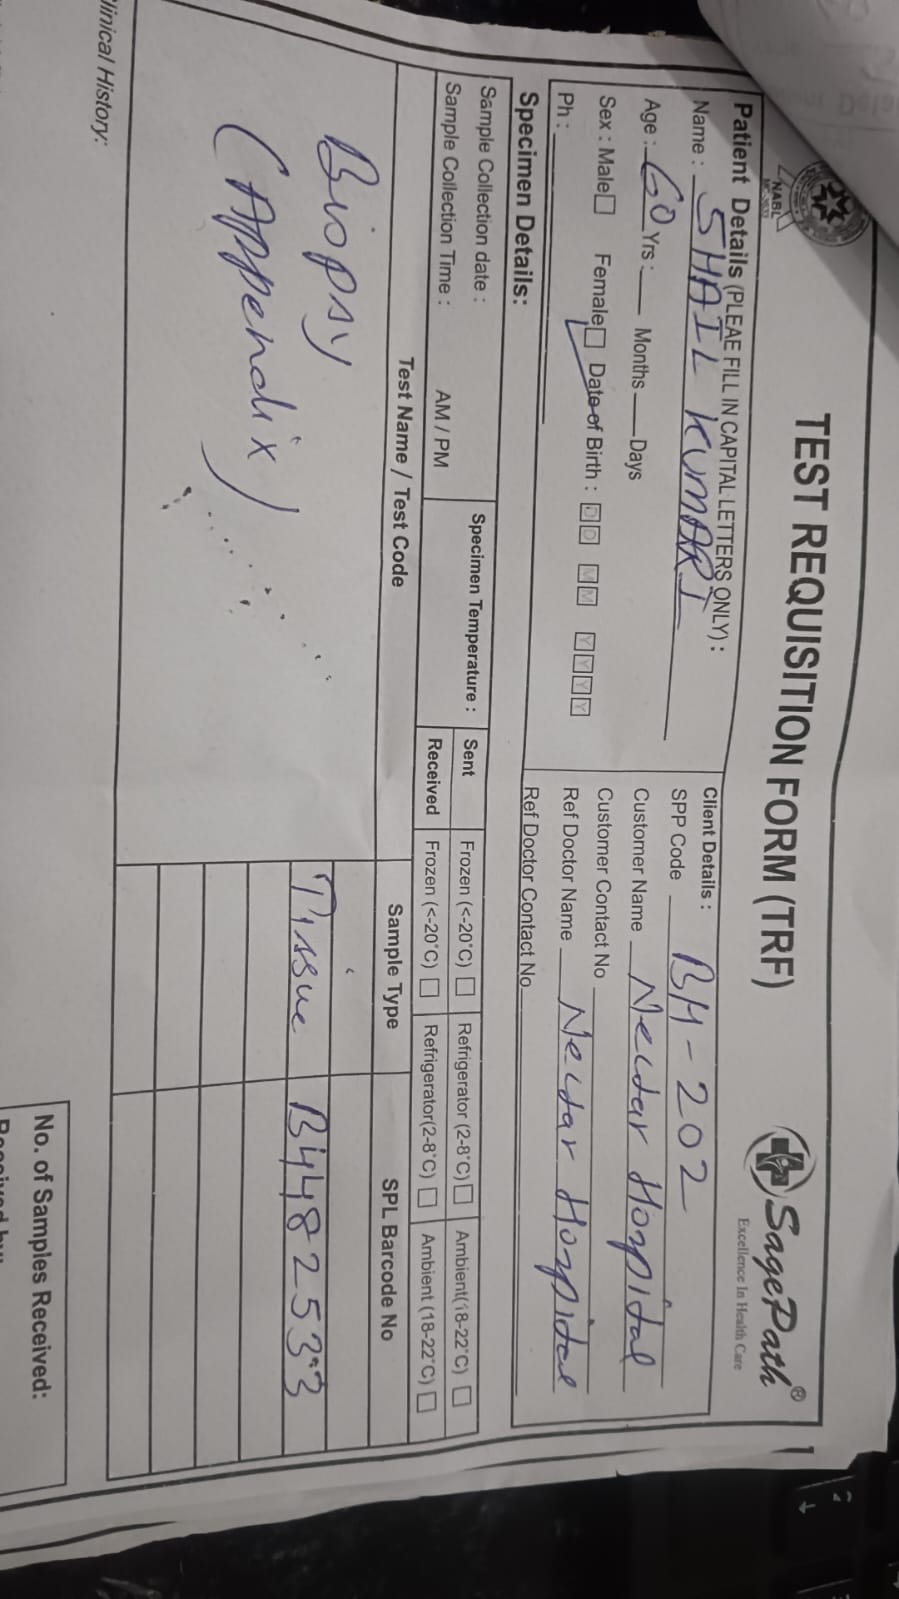 TEST REQUISITION FORM (TRF)
SagePath®
Excellence In Health Care
NABL
Patient Details (PLEAE FILL IN CAPITAL LETTERS ONLY) :
Name : SHAIL KUMARI
Age : 60 Yrs : Months Days
Sex : Male Female Date of Birth : D D M M Y Y Y Y
Ph :
Client Details :
SPP Code BH-202
Customer Name Nectar Hospital
Customer Contact No
Ref Doctor Name Nectar Hospital
Ref Doctor Contact No
Specimen Details:
Sample Collection date :
Sample Collection Time : AM / PM
Specimen Temperature :
Sent Frozen (<-20°C) Refrigerator (2-8°C) Ambient(18-22°C)
Received Frozen (<-20°C) Refrigerator(2-8°C) Ambient (18-22°C)
Test Name / Test Code Sample Type SPL Barcode No
Biopsy Tissue B4482533
(Appendix)
linical History:
No. of Samples Received: